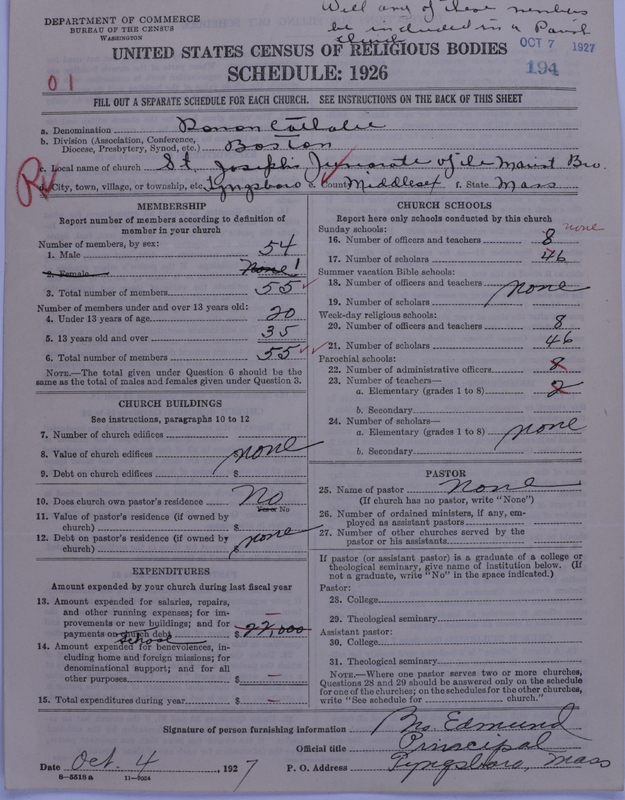 Will any of these members
be included in a Parish
DEPARTMENT OF COMMERCE
BUREAU OF THE CENSUS
WASHINGTON
UNITED STATES CENSUS OF RELIGIOUS BODIES
OCT 7 1927
SCHEDULE: 1926
194
01
FILL OUT A SEPARATE SCHEDULE FOR EACH CHURCH. SEE INSTRUCTIONS ON THE BACK OF THIS SHEET
a. Denomination Roman Catholic
b. Division (Association, Conference, Diocese, Presbytery, Synod, etc.) Boston
c. Local name of church St. Joseph's Juniorate of the Marist Bro.
d. City, town, village, or township, etc. Tyngsboro e. County Middlesex f. State Mass
MEMBERSHIP
Report number of members according to definition of
member in your church
Number of members, by sex:
1. Male 54
2. Female None 1
3. Total number of members 55
Number of members under and over 13 years old:
4. Under 13 years of age 20
5. 13 years old and over 35
6. Total number of members 55
NOTE.—The total given under Question 6 should be
same as the total of males and females given under Question 3.
CHURCH BUILDINGS
See instructions, paragraphs 10 to 12
7. Number of church edifices
8. Value of church edifices $ none
9. Debt on church edifices $
10. Does church own pastor's residence No
Yes or No
11. Value of pastor's residence (if owned by
church) $
12. Debt on pastor's residence (if owned by
church) $ none
EXPENDITURES
Amount expended by your church during last fiscal year
13. Amount expended for salaries, repairs,
and other running expenses; for im-
provements or new buildings; and for
payments on church debt $ 22,000
school
14. Amount expended for benevolences, in-
cluding home and foreign missions; for
denominational support; and for all
other purposes $ —
15. Total expenditures during year $ —
CHURCH SCHOOLS
Report here only schools conducted by this church
Sunday schools: none
16. Number of officers and teachers 8
17. Number of scholars 46
Summer vacation Bible schools:
18. Number of officers and teachers none
19. Number of scholars
Week-day religious schools:
20. Number of officers and teachers 8
21. Number of scholars 46
Parochial schools:
22. Number of administrative officers 8
23. Number of teachers—
a. Elementary (grades 1 to 8) 2
b. Secondary
24. Number of scholars—
a. Elementary (grades 1 to 8) none
b. Secondary
PASTOR
25. Name of pastor None
(If church has no pastor, write "None")
26. Number of ordained ministers, if any, em-
ployed as assistant pastors
27. Number of other churches served by the
pastor or his assistants
If pastor (or assistant pastor) is a graduate of a college or
theological seminary, give name of institution below. (If
not a graduate, write "No" in the space indicated.)
Pastor:
28. College
29. Theological seminary
Assistant pastor:
30. College
31. Theological seminary
NOTE.—Where one pastor serves two or more churches,
Questions 28 and 29 should be answered only on the schedule
for one of the churches; on the schedules for the other churches,
write "See schedule for church."
Signature of person furnishing information Bro. Edmund
Official title Principal
Date Oct. 4, 1927 P. O. Address Tyngsboro, Mass
8—5518a 11—9024